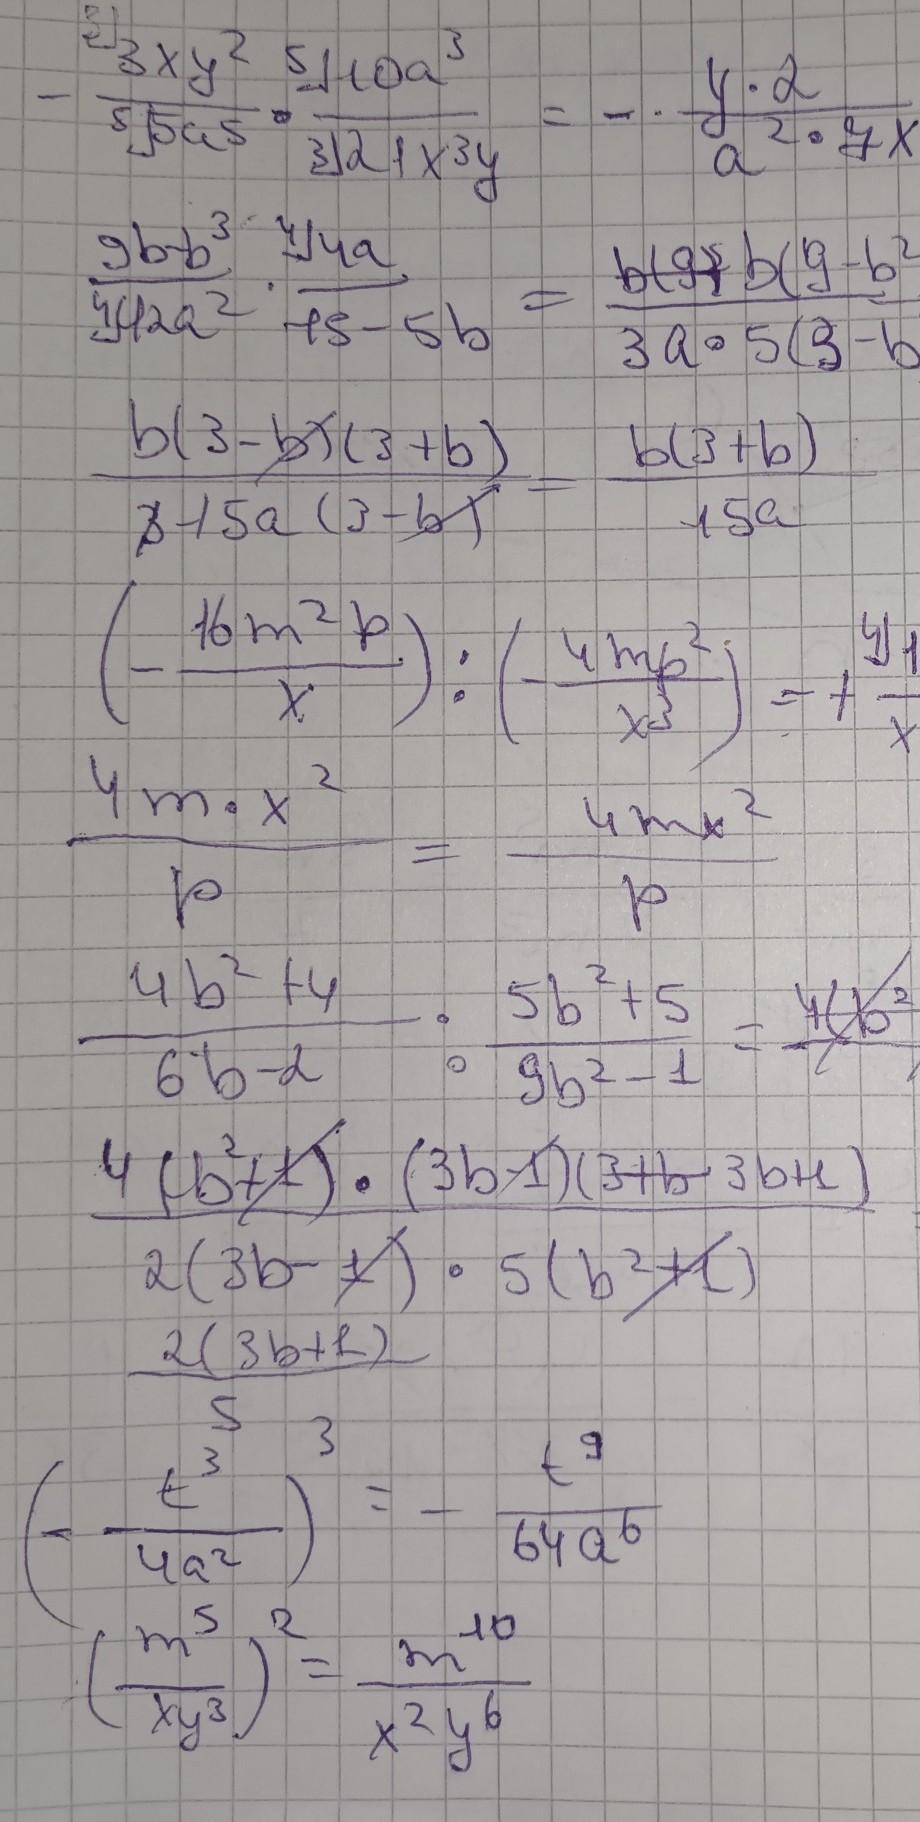 - 3xy² / 5a⁵ · 10a³ / 21x³y = - · y · 2 / a² · 7x
9b-b³ / 12a² · 4a / 15-5b = b(9-b² / 3a · 5(3-b
b(3-b)(3+b) / 15a(3-b) = b(3+b) / 15a
(- 16m²p / x) : (- 4mp² / x³) = +
4m·x² / p = 4mx² / p
4b²+4 / 6b-2 : 5b²+5 / 9b²-1 = 4(b²
4(b²+1) · (3b-1)(3+b 3b+1) / 2(3b-1) · 5(b²+1)
2(3b+1) / 5
(- t³ / 4a²)³ = - t⁹ / 64a⁶
(m⁵ / xy³)² = m¹⁰ / x²y⁶